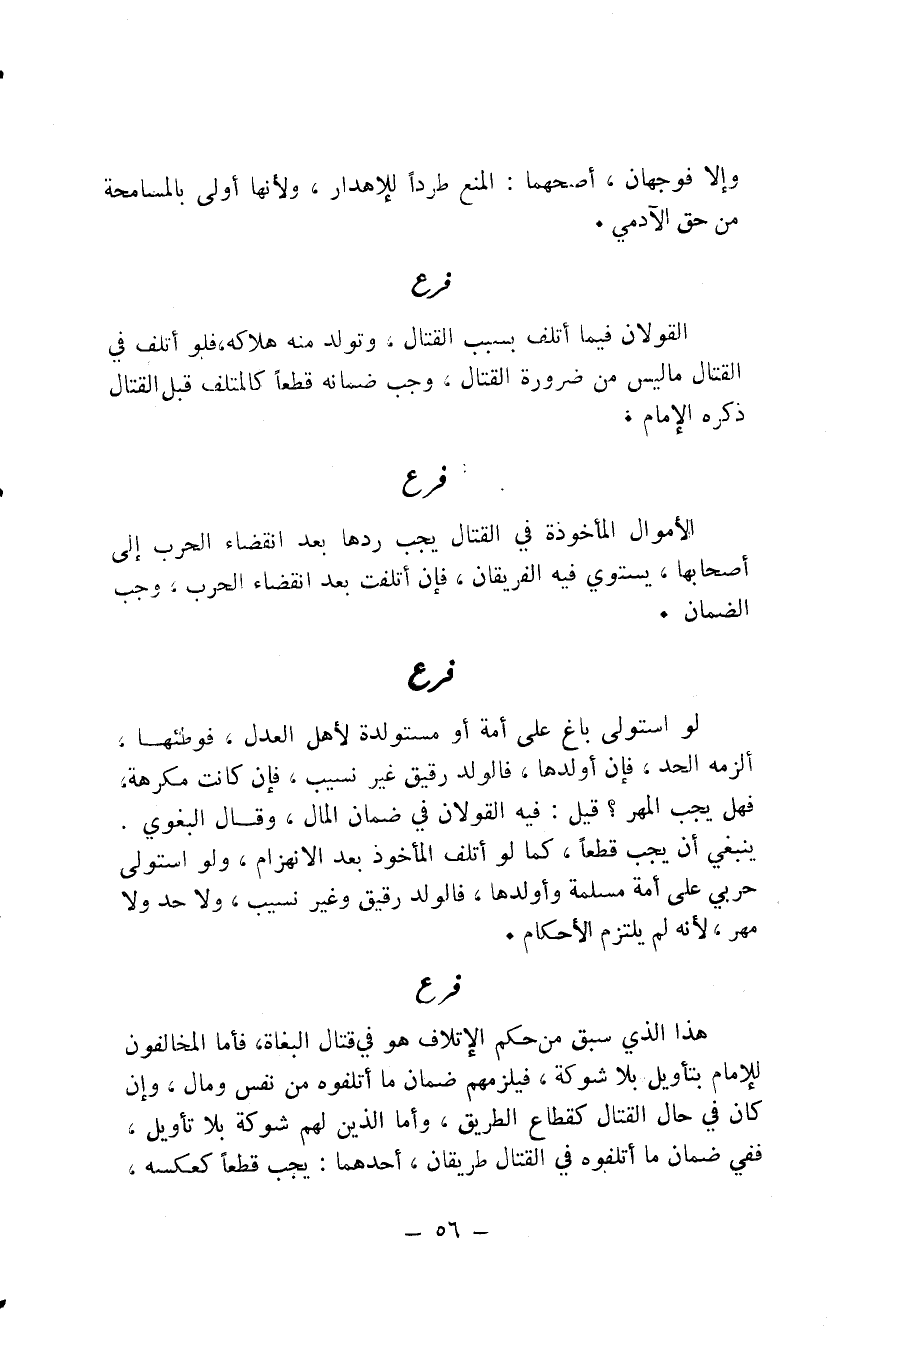 وإلا فوجهان ، أصحهما : المنع طرداً للإهدار ، ولأنها أولى بالمسامحة
من حق الآدمي .
فرع
القولان فيما أتلف بسبب القتال ، وتولد منه هلاكه،فلو أتلف في
القتال ماليس من ضرورة القتال ، وجب ضمانه قطعاً كالمتلف قبل القتال
ذكره الإمام .
فرع
الأموال المأخوذة في القتال يجب ردها بعد انقضاء الحرب إلى
أصحابها ، يستوي فيه الفريقان ، فإن أتلفت بعد انقضاء الحرب ، وجب
الضمان .
فرع
لو استولى باغ على أمة أو مستولدة لأهل العدل ، فوطئهـا ،
ألزمه الحد ، فإن أولدها ، فالولد رقيق غير نسيب ، فإن كانت مكرهة،
فهل يجب المهر ؟ قيل : فيه القولان في ضمان المال ، وقـال البغوي .
ينبغي أن يجب قطعاً ، كما لو أتلف المأخوذ بعد الانهزام ، ولو استولى
حربي على أمة مسلمة وأولدها ، فالولد رقيق وغير نسيب ، ولا حد ولا
مهر ، لأنه لم يلتزم الأحكام .
فرع
هذا الذي سبق من حكم الإتلاف هو في قتال البغاة، فأما المخالفون
للإمام بتأويل بلا شوكة ، فيلزمهم ضمان ما أتلفوه من نفس ومال ، وإن
كان في حال القتال كقطاع الطريق ، وأما الذين لهم شوكة بلا تأويل ،
ففي ضمان ما أتلفوه في القتال طريقان ، أحدهما : يجب قطعاً كعكسه ،
– ٥٦ –